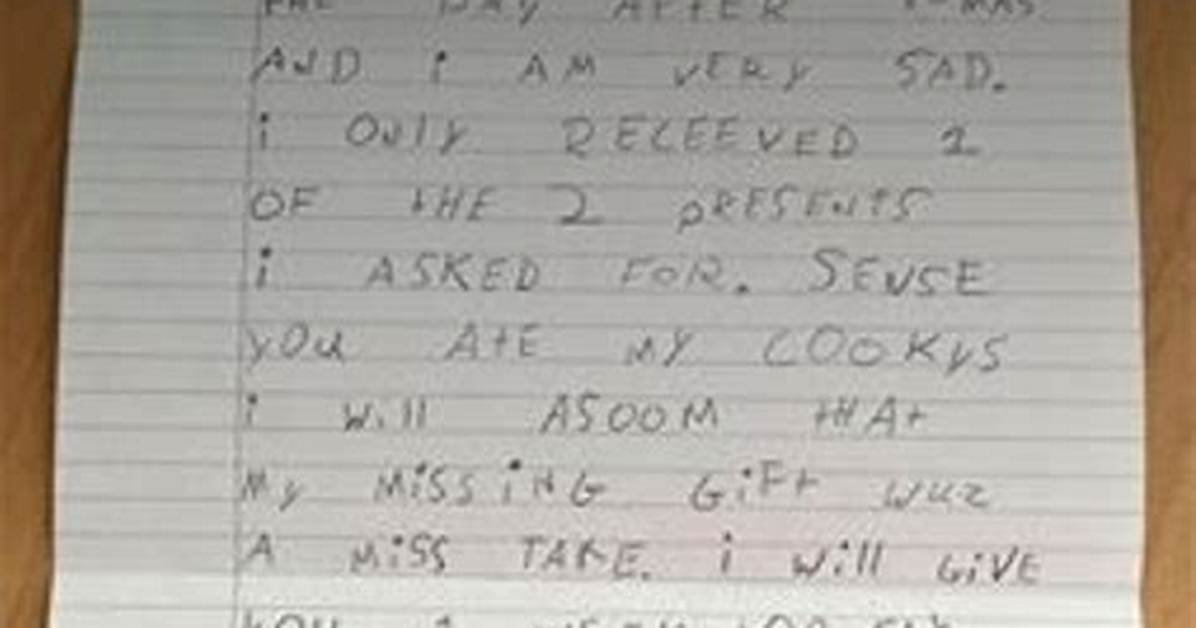 DAY AFTER
AND i AM VERY SAD.
i ONLY RECEEVED 1
OF tHE 2 pRESENtS
i ASKED FOR. SENSE
YOu AtE MY COOKYS
i Will ASOOM tHAt
My MiSSiNG GiFt wuz
A MiSS TAKE. i Will GiVE
YOU 1